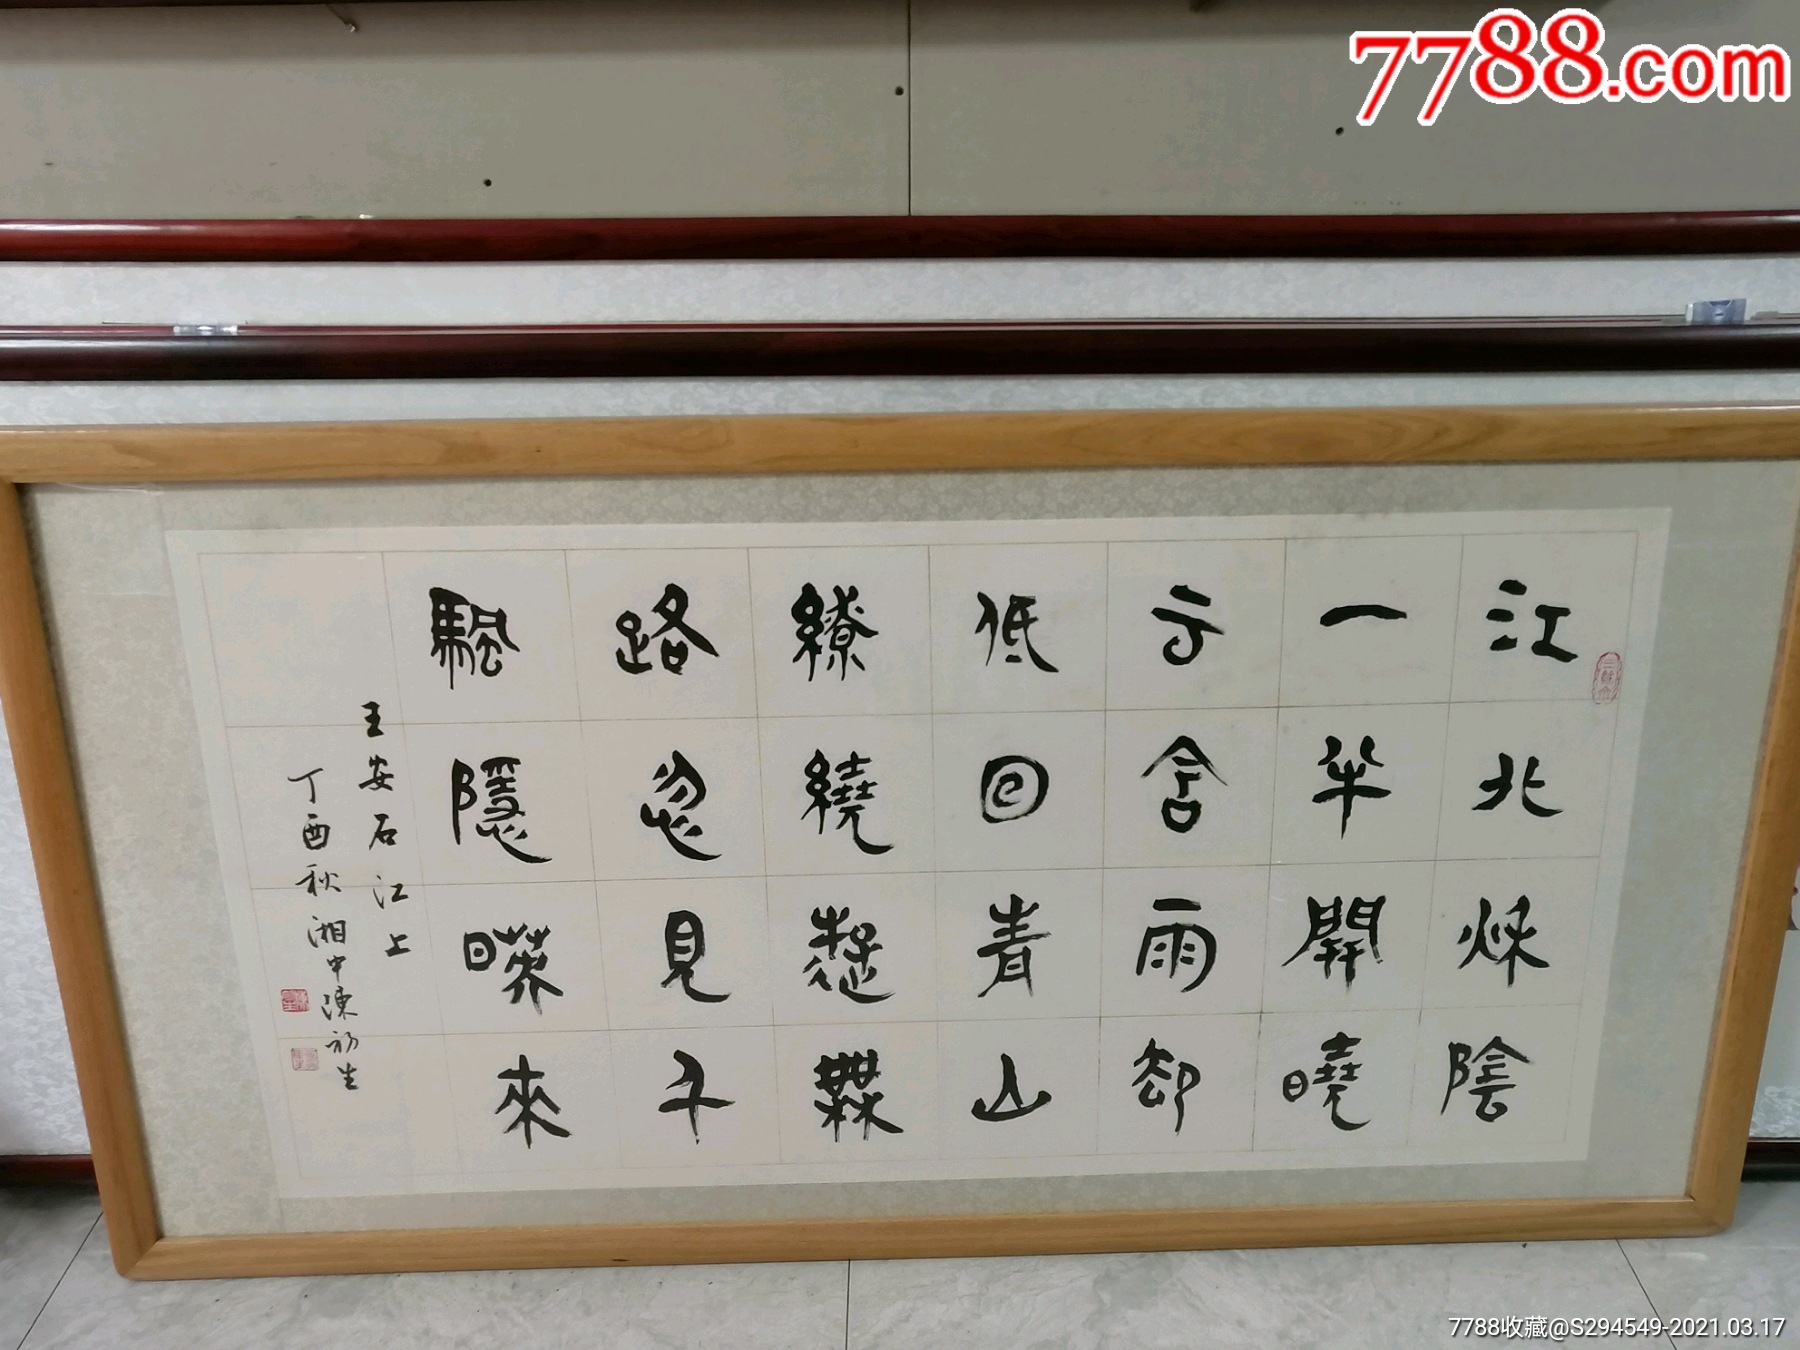 7788.com
江北秌陰
一半開曉
云含雨卻
低回青山
繚繞疑無
路忽見千
颿隱暎來
王安石江上
丁酉秋湘中陳初生
7788收藏@S294549-2021.03.17